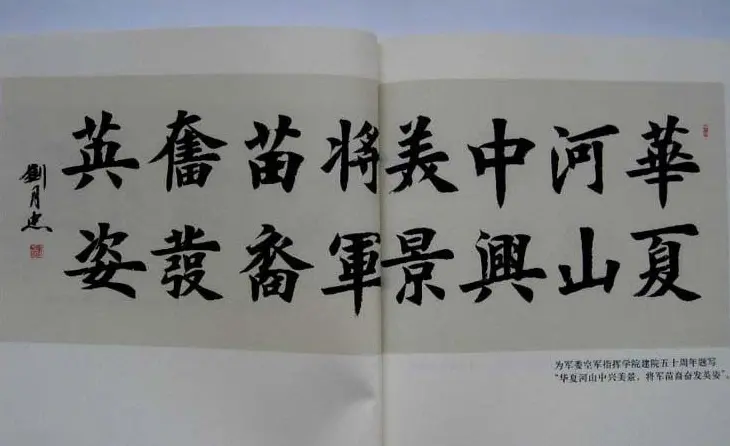 華夏
河山
中興
美景
將軍
苗裔
奮發
英姿
劉月忠
为军委空军指挥学院建院五十周年题写
“华夏河山中兴美景，将军苗裔奋发英姿”。